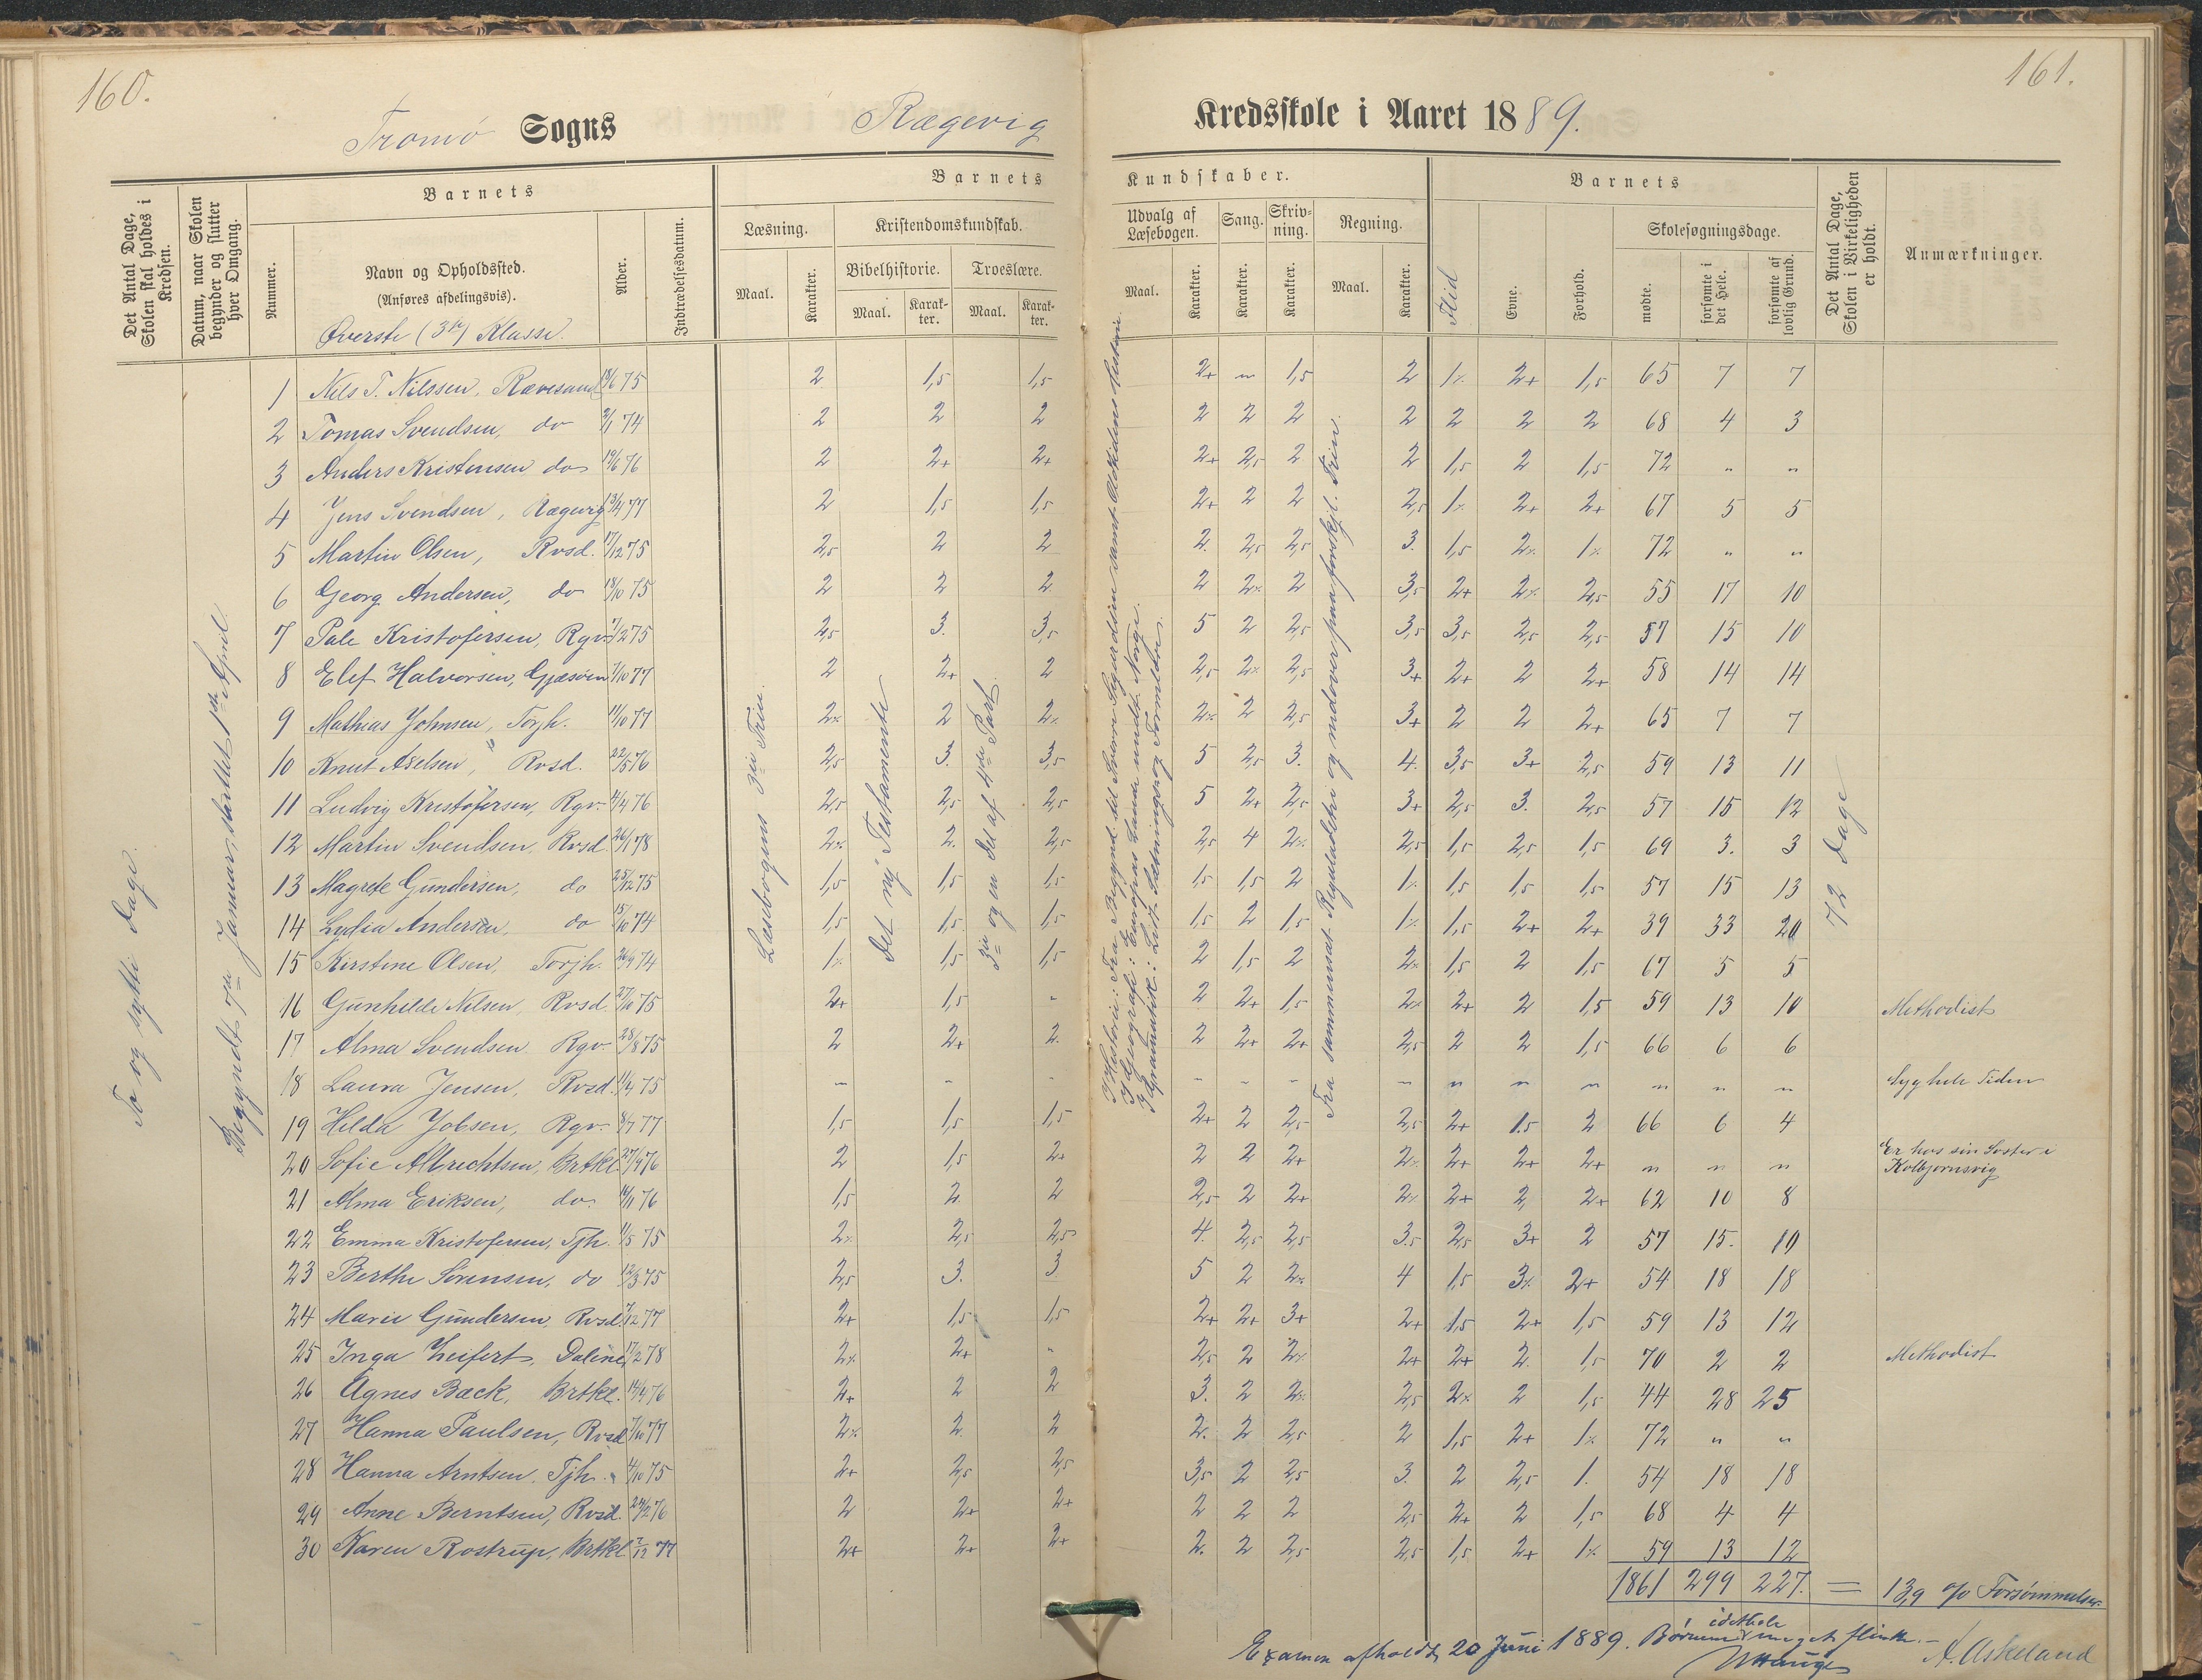 160.
161.
Tromø Sogns Rægevig Kredsskole i Aaret 1889.
Det Antal Dage, Skolen skal holdes i Kredsen.
Datum, naar Skolen begynder og slutter hver Omgang.
Barnets
Nummer.
Navn og Opholdssted.
(Anføres afdelingsvis).
Øverste (3die) Klasse.
Alder.
Indtrædelsesdatum.
Barnets Kundskaber.
Læsning.
Maal.
Karakter.
Kristendomskundskab.
Bibelhistorie.
Maal.
Karakter.
Troeslære.
Maal.
Karakter.
Udvalg af Læsebogen.
Maal.
Karakter.
Sang.
Karakter.
Skrivning.
Karakter.
Regning.
Maal.
Karakter.
Barnets
Flid
Evne.
Forhold.
Skolesøgningsdage.
mødte.
forsømte i det Hele.
forsømte af lovlig Grund.
Det Antal Dage, Skolen i Virkeligheden er holdt.
Anmærkninger.
To og sytti Dage.
Begyndt 7de Januar, sluttet 1ste April.
Læsebogens 3die Trin.
Det ny Testamente
3die og en Del af 4de Part.
I Historie: Fra Begyndt til Svein Sigurdsøn samt Oldtidens Historie.
I Geografi: Europas Lande undt. Norge.
I Gramatik: Lidt Sætnings og Formlære.
Fra sammensat Reguladetri og nedover paa forskjl. Trin.
72 Dage
1 Nels T. Nilssen, Rævesand 18/6 75 2 1,5 1,5 2+ " 1,5 2 1٪ 2+ 1,5 65 7 7
2 Tomas Svendsen, do 2/1 74 2 2 2 2 2 2 2 2 2 2 68 4 3
3 Anders Kristensen do 19/6 76 2 2+ 2+ 2+ 2,5 2 2 1,5 2 1,5 72 " "
4 Jens Svendsen, Rægevig 13/4 77 2 1,5 1,5 2+ 2 2 2,5 1٪ 2+ 2+ 67 5 5
5 Martin Olsen, Rvsd. 17/12 75 2,5 2 2 2. 2,5 2,5 3. 1,5 2٪ 1٪ 72 " "
6 Georg Andersen, do 18/10 75 2 2 2 2 2٪ 2 3,5 2+ 2٪ 2,5 55 17 10
7 Pale Kristofersen, Rgv. 7/2 75 2,5 3. 3,5 5 2 2,5 3,5 3,5 2,5 2,5 57 15 10
8 Elef Halvorsen, Gjæsøen 7/10 77 2 2+ 2 2,5 2٪ 2,5 3+ 2+ 2 2+ 58 14 14
9 Mathias Johnsen, Torjh. 11/10 77 2٪ 2 2٪ 2٪ 2 2,5 3+ 2 2 2+ 65 7 7
10 Knut Axelsen, Rvsd. 22/5 76 2,5 3. 3,5 5 2,5 3. 4. 3,5 3+ 2,5 59 13 11
11 Ludvig Kristofersen, Rgv. 4/4 76 2,5 2,5 2,5 5 2+ 2,5 3+ 2,5 3. 2,5 57 15 12
12 Martin Svendsen, Rvsd. 26/1 78 2٪ 2. 2,5 2,5 4 2٪ 2,5 1,5 2,5 1,5 69 3. 3
13 Magrete Gundersen, do 25/12 75 1,5 1,5 1,5 1,5 1,5 2 1٪ 1,5 1,5 1,5 57 15 13
14 Lydia Andersen, do 15/10 74 1,5 1,5 1,5 1,5 2 1,5 1٪ 1,5 2+ 2+ 39 33 20
15 Kirstine Olsen, Torjh. 26/9 74 1٪ 1,5 1,5 2 1,5 2 2٪ 1,5 2 1,5 67 5 5
16 Gunhilde Nilsen, Rvsd. 27/10 75 2+ 1,5 - 2 2+ 1,5 2٪ 2+ 2 1,5 59 13 10 Methodist
17 Alma Svendsen Rgv. 28/8 75 2 2+ 2. 2 2+ 2+ 2,5 2 2 1,5 66 6 6
18 Laura Jensen, Rvsd. 11/4 75 - - - - - - - " " " " " " Syg hele Tiden
19 Hilda Jobsen, Rgv. 8/7 77 1,5 1,5 1,5 2+ 2 2,5 2,5 2+ 1.5 2 66 6 4
20 Sofie Albrechtsen, Brtkl. 27/9 76 2 1,5 2+ 2 2 2+ 2٪ 2+ 2+ 2+ " " " Er hos sin Søster i Kolbjørnsvig
21 Alma Eriksen, do. 14/11 76 1,5 2. 2 2,5 2 2+ 2٪ 2+ 2, 2+ 62 10 8
22 Emma Kristofersen, Tjh. 11/5 75 2٪ 2,5 2,5 4. 2,5 2,5 3.5 2,5 3+ 2 57 15. 10
23 Berthe Sørensen, do 12/3 75 2,5 3. 3 5 2 2٪ 4 1,5 3٪ 2+ 54 18 18
24 Marie Gundersen, Rvsd. 7/12 77 2+ 1,5 1,5 2+ 2+ 3+ 2+ 1,5 2+ 1,5 59 13 12
25 Inga Leifert, Dalene, 17/2 78 2٪ 2+ " 2,5 2 2٪ 2+ 2+ 2. 1,5 70 2 2 Methodist
26 Agnes Bæck, Brtkl. 14/4 76 2+ 2 2 3. 2 2٪ 2,5 2٪ 2 1,5 44 28 25
27 Hanna Paulsen, Rvsd 7/10 77 2٪ 2. 2 2. 2 2,5 2 1,5 2+ 1٪ 72 " "
28 Hanna Arntsen, Tjh. 4/10 75 2+ 2,5 2,5 3,5 2 2,5 3. 2 2,5 1. 54 18 18
29 Anne Berntsen, Rvsd. 24/2 76 2 2+ 2+ 2 2 2 2,5 2+ 2 1,5 68 4 4
30 Karen Rostrup, Brtkl. 7/12 77 2+ 2+ 2+ 2. 2 2,5 2,5 1,5 2+ 1٪ 59 13 12
1861 299 227. = 13,9 o/o Forsømmelser.
Examen afholdt 20 Juni 1889. Børnene idethele meget flinke. -
A. Askeland